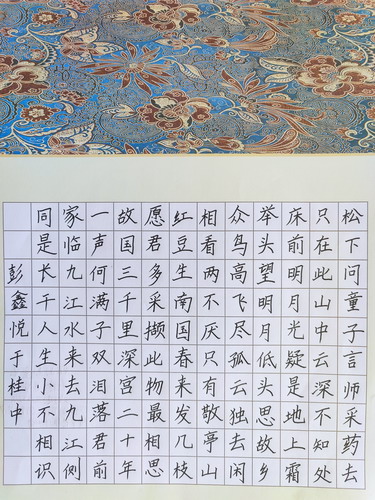 松下问童子言师采药去
只在此山中云深不知处
床前明月光疑是地上霜
举头望明月低头思故乡
众鸟高飞尽孤云独去闲
相看两不厌只有敬亭山
红豆生南国春来发几枝
愿君多采撷此物最相思
故国三千里深宫二十年
一声何满子双泪落君前
家临九江水来去九江侧
同是长干人生小不相识
彭鑫悦于桂中